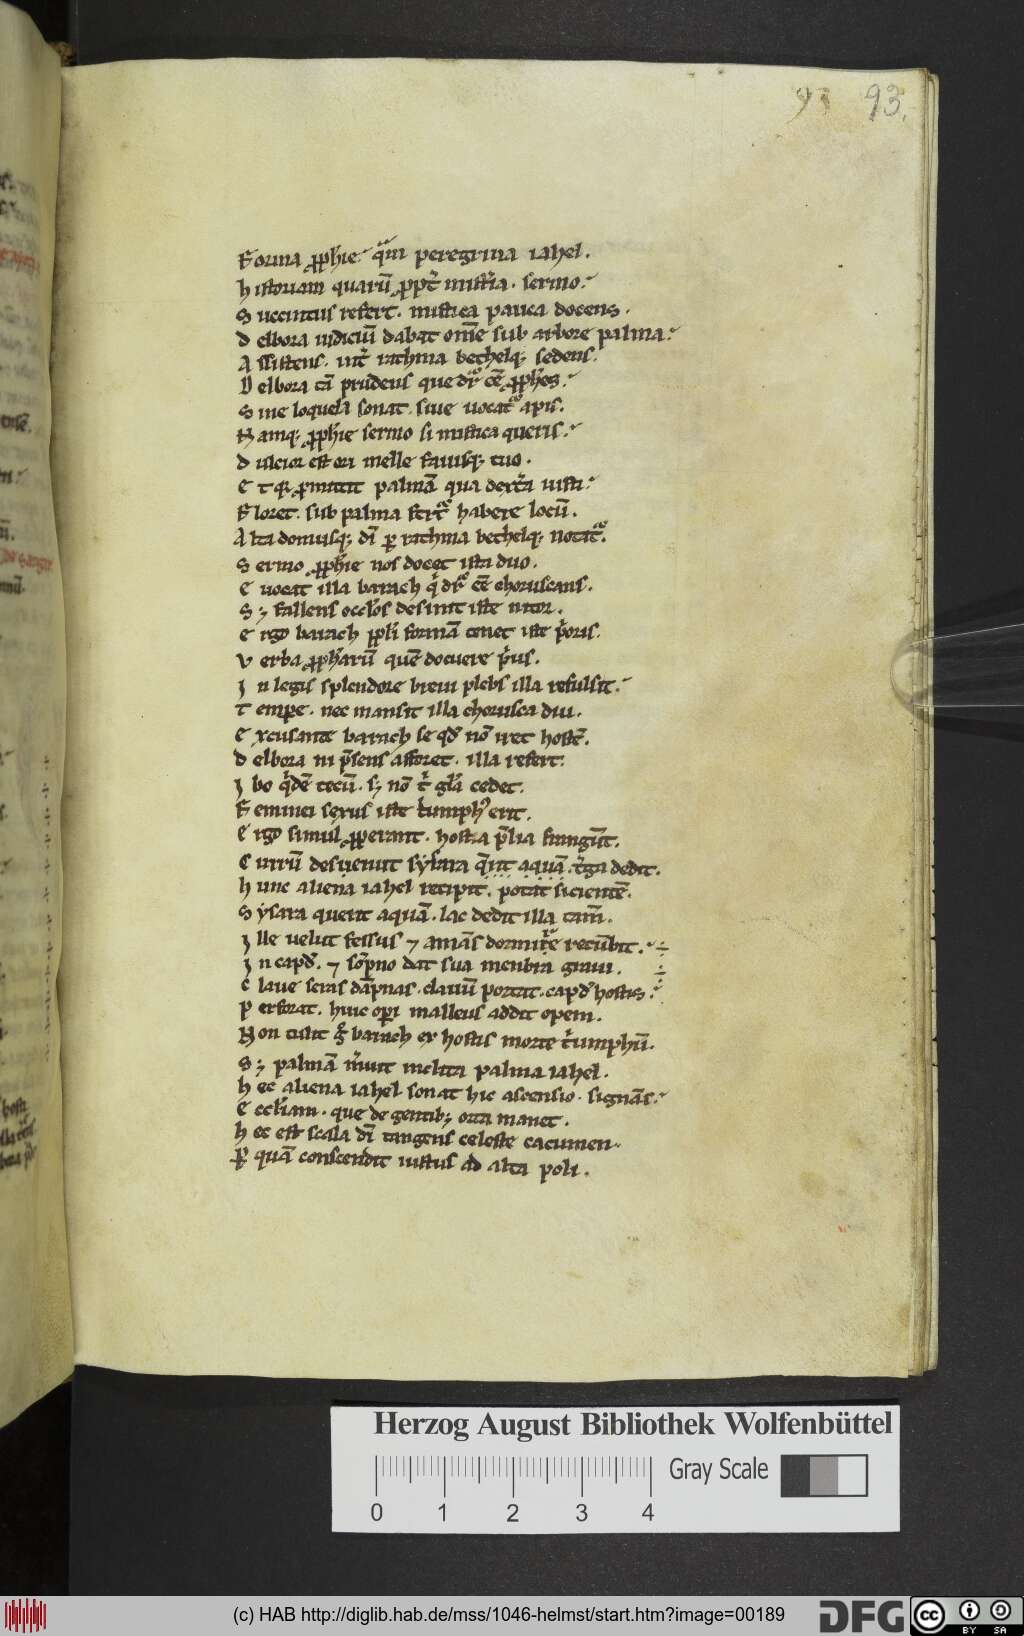 93 93.
Forma ꝓph̅ie. q̅m peregrina iahel.
historiam quarū ꝓpt̄ mist̄ia. sermo.
Succintus refert. mistica pauca docens.
delbora iudiciū dabat om̅e sub arbore palma.
Assistens. int̄ rathma bethelq; sedens.
Delbora tā prudens que dr̄ ē̄e ꝓph̅es.
Sine loquela sonat. siue uocat᷑ apis.
Namq; ꝓph̅ie sermo si mistica queris.
dulcior est ori melle fauisq; tuo.
Et qꝛ ꝓmittit palmā qua dext̄a iusti.
Floret. sub palma fert᷑ habere locū.
Alta domusq; dī ꝑ rathma bethelq; notat᷑.
Sermo ꝓph̅ie nos docet ista duo.
Euocat illa barach q̇ dr̄ ē̄e choruscans.
S; fallens occl̅os desinit iste nitor.
ergo barach ꝓpl̅i formā tenet iste p̄oris.
Verba ꝓph̅arū quē docuere p̄us.
In legis splendore breui plebs illa refulsit.
Tempe. nec mansit illa chorusca diu.
excusante barach se qd̄ nō iret hostē.
delbora ni p̄sens afforet. illa refert.
Ibo q̇dē tecū. s; nō ṫ gl̅a cedet.
Feminei sexus iste ṫumph᷒ erit.
ergo simul ꝓperant. hostica p̄lia frangūt.
Currū deseruit sẏsara q̄rit aquā. t̄ga dedit.
hunc aliena iahel recipit. potat sicientē.
Sẏsara querit aquā. lac dedit illa tam̄.
Ille uelut fessus ⁊ amās dormit̄e recūbit.
In capd̄. ⁊ sōpno dat sua menbra graui.
Claue seras dāpnas. clauū portat. capd̄ hostis.
perforat. huic oꝑi malleus addit opem.
Non tulit g̊ barach ex hostis morte ṫumphū.
S; palmā m̄uit inclita palma iahel.
hec aliena iahel sonat hic ascensio. signās.
Eccl̅iam. que de gentib; orta manet.
hec est scala dī tangens celeste cacumen.
ꝑ quā conscendit iustus ad alta poli.
Herzog August Bibliothek Wolfenbüttel
Gray Scale
0 1 2 3 4
(c) HAB http://diglib.hab.de/mss/1046-helmst/start.htm?image=00189
DFG
cc BY SA